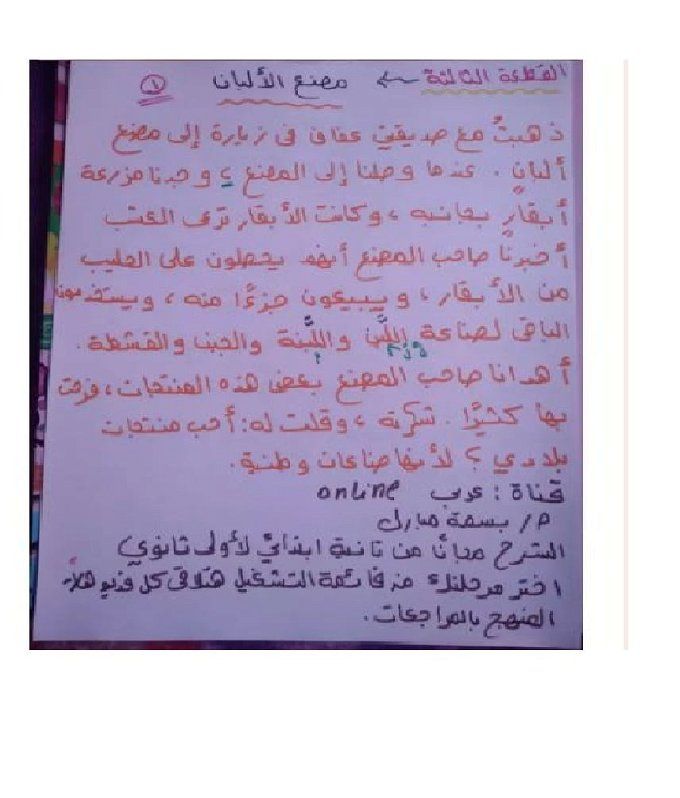 القطعة الثالثة ← مصنع الألبان ١
ذهبتُ مع صديقتي عفاف في زيارة إلى مصنع
ألبانٍ . عندما وصلنا إلى المصنع ؛ وجدنا مزرعة
أبقارٍ بجانبه ، وكانت الأبقار ترعى العشب
أخبرنا صاحب المصنع أنهم يحصلون على الحليب
من الأبقار ، ويبيعون جزءًا منه ، ويستخدمون
الباقي لصناعة اللَّبن واللَّبنة والجبن والقشطة .
أهدانا صاحب المصنع بعض هذه المنتجات ، فرحت
بها كثيرًا . شكرته ، وقلت له : أحب منتجات
بلادي ؛ لأنها صناعات وطنية .
قناة : عربي online
م / بسمة مبارك
الشرح مجانًا من تانية ابتدائي لأولى ثانوي
اختر مرحلتك من قائمة التشغيل هتلاقي كل فيديوهات
المنهج بالمراجعات .